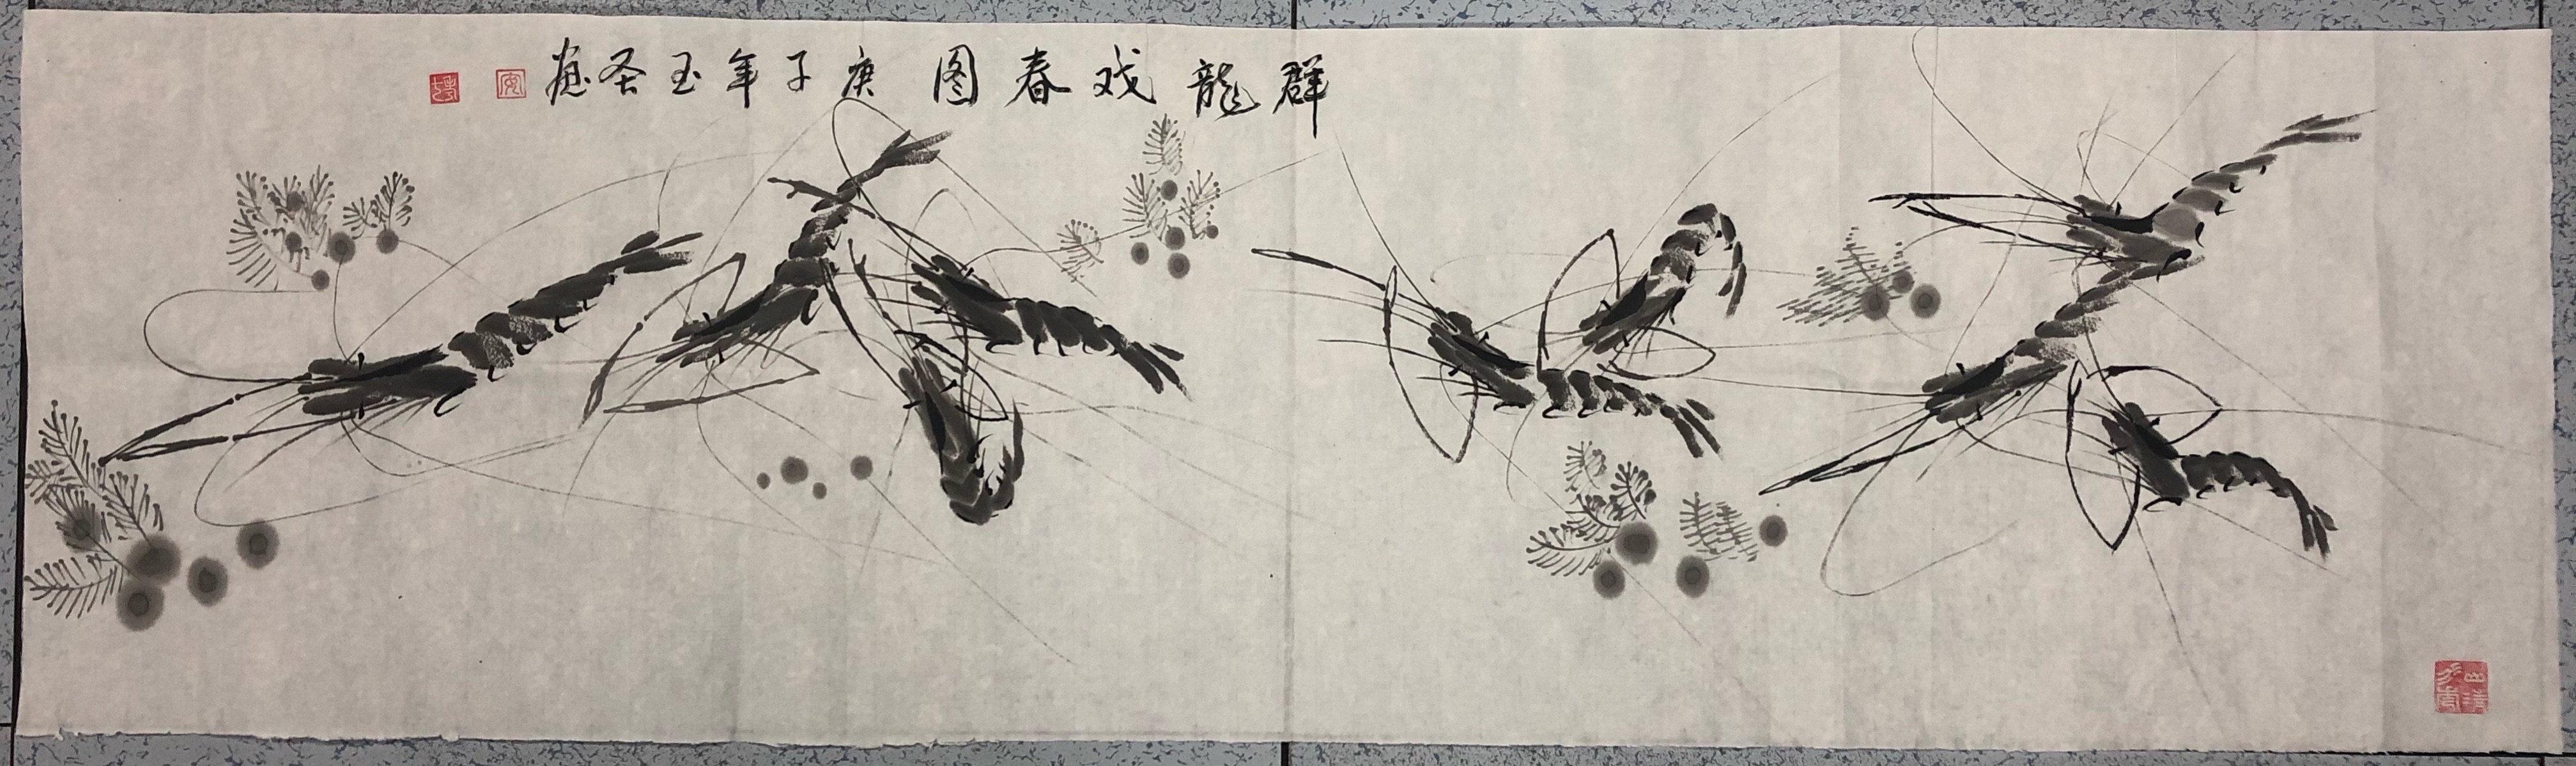 群龍戏春图 庚子年玉圣画